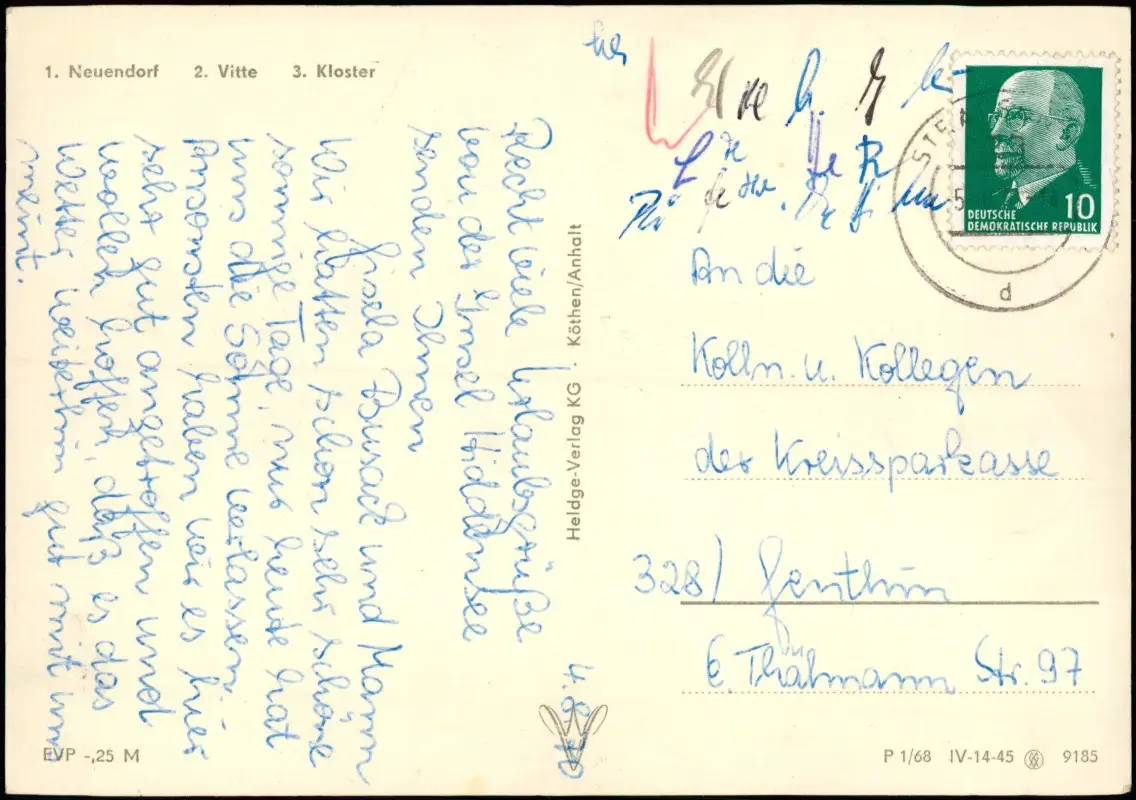 1. Neuendorf 2. Vitte 3. Kloster
4.8.70
Recht viele Urlaubsgrüße
von der Insel Hiddensee
senden Ihnen
Gisela Busack und Mann
Wir hatten schon sehr schöne
sonnige Tage, nur heute hat
uns die Sonne verlassen.
Ansonsten haben wir es hier
sehr gut angetroffen und
wollen hoffen, daß es das
Wetter weiterhin gut mit uns
meint.
EVP -,25 M
Heldge-Verlag KG · Köthen/Anhalt
DEUTSCHE
DEMOKRATISCHE REPUBLIK
10
d
An die
Kolln. u. Kollegen
der Kreissparkasse
328/ Genthin
E. Thälmann Str. 97
P 1/68 IV-14-45 9185